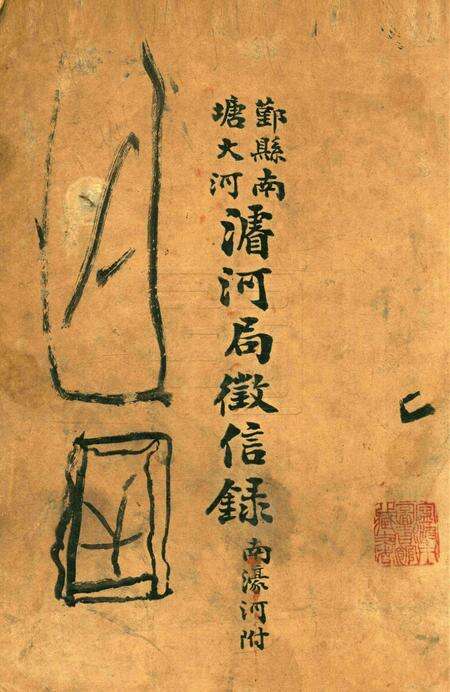 鄞縣南
塘大河
濬河局徵信錄
南濠河附